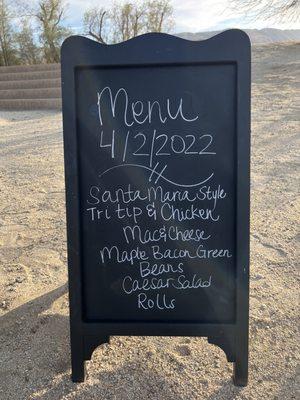 Menu
4/2/2022
Santa Maria Style
Tri tip & Chicken
Mac & Cheese
Maple Bacon Green
Beans
Caesar Salad
Rolls